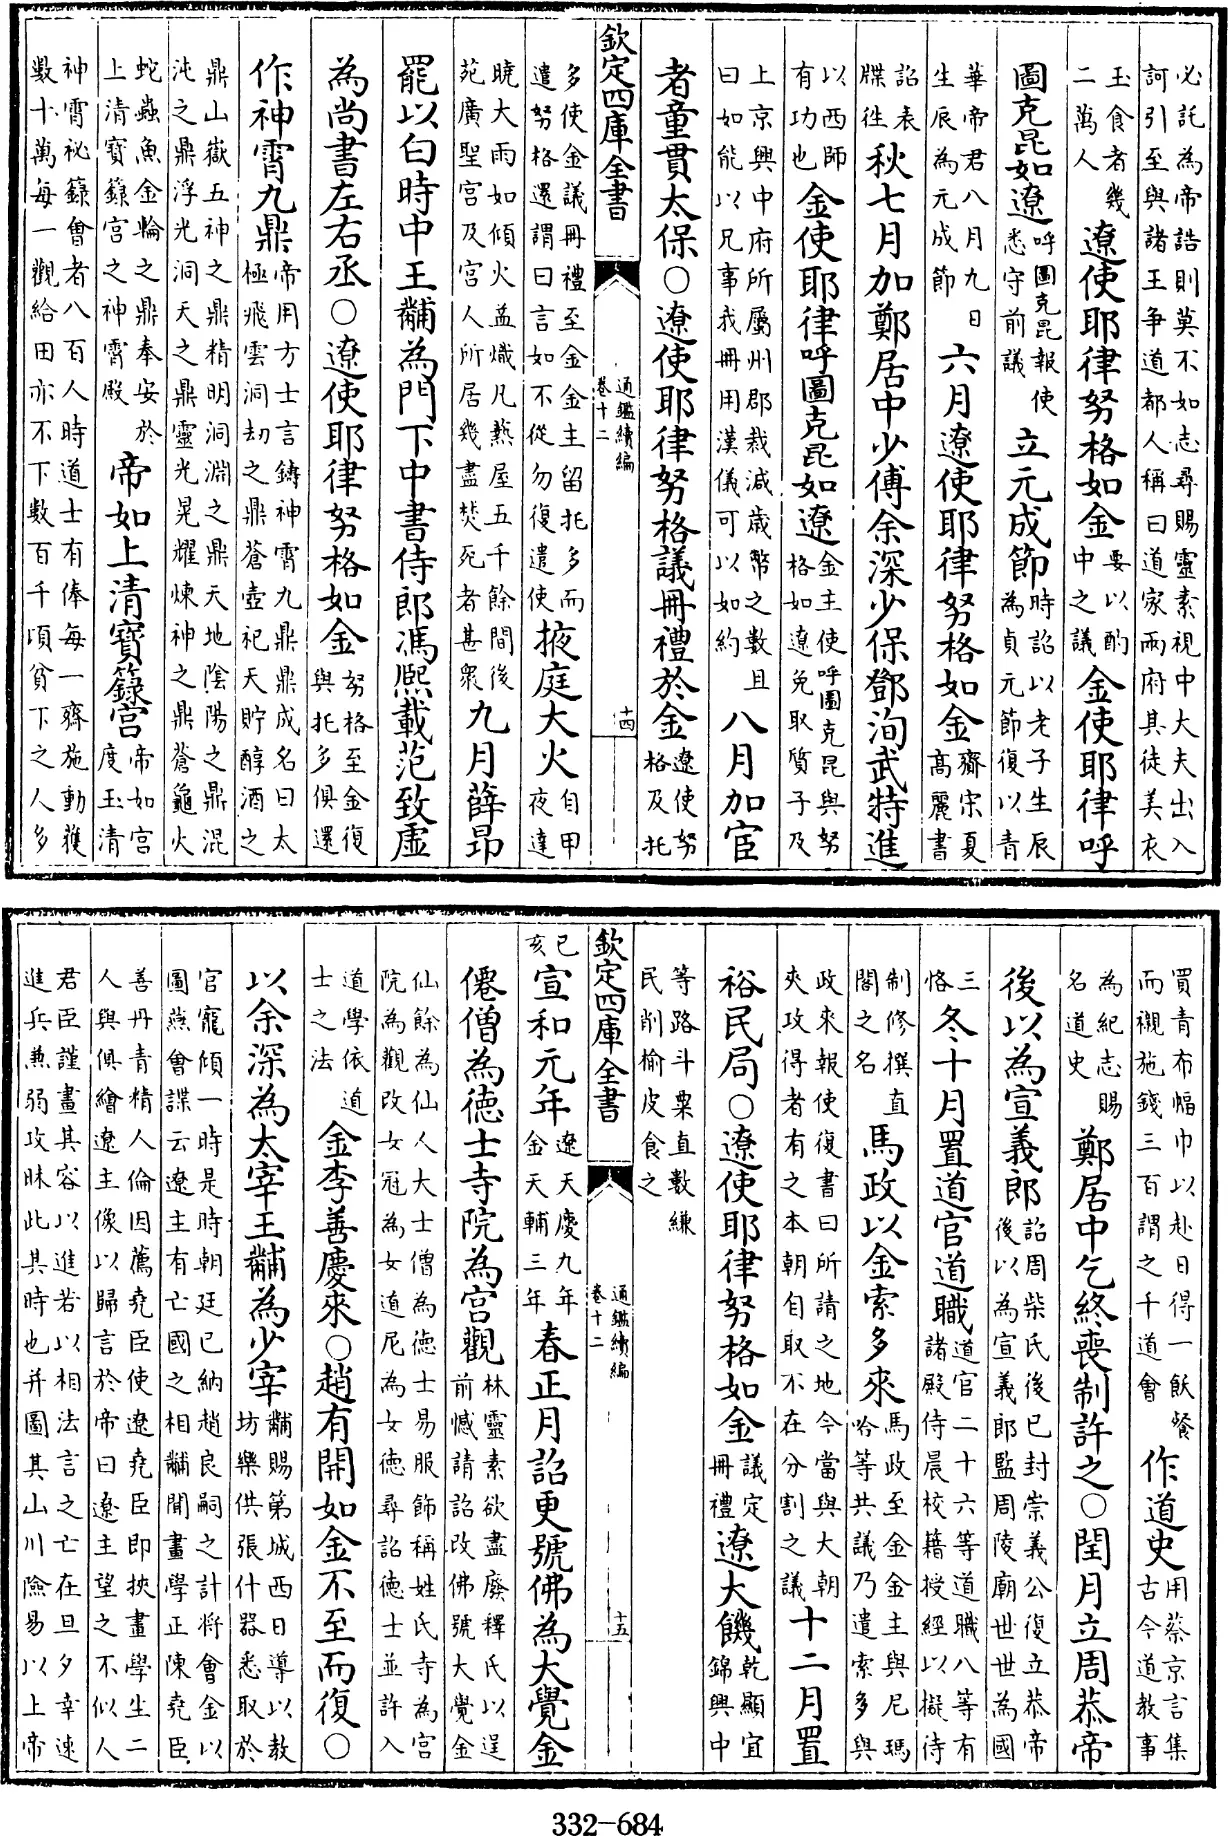 必託為帝誥則莫不如志尋賜靈素視中大夫出入
訶引至與諸王争道都人稱曰道家兩府其徒美衣
玉食者幾二萬人遼使耶律努格如金要以酌中之議金使耶律呼
圖克昆如遼呼圖克昆報使悉守前議立元成節時詔以老子生辰為貞元節復以青
華帝君八月九日生辰為元成節六月遼使耶律努格如金齎宋夏高麗書
詔表牒徃秋七月加鄭居中少傅余深少保鄧洵武特進
以西師有功也金使耶律呼圖克昆如遼金主使呼圖克昆與努格如遼免取質子及
上京興中府所屬州郡裁減歳幣之數且曰如能以兄事我冊用漢儀可以如約八月加宦
者童貫太保○遼使耶律努格議冊禮於金遼使努格及托
欽定四庫全書 通鑑續編 卷十二 十四
多使金議冊禮至金金主留托多而遣努格還謂曰言如不從勿復遣使掖庭大火自甲夜達
曉大雨如傾火益熾凡爇屋五千餘間後苑廣聖宫及宫人所居幾盡焚死者甚衆九月薛昂
罷以白時中王黼為門下中書侍郎馮熙載范致虛
為尚書左右丞○遼使耶律努格如金努格至金復與托多俱還
作神霄九鼎帝用方士言鑄神霄九鼎鼎成名曰太極飛雲洞刧之鼎蒼壺祀天貯醇酒之
鼎山嶽五神之鼎精明洞淵之鼎天地陰陽之鼎混沌之鼎浮光洞天之鼎靈光晃耀煉神之鼎蒼龜火
蛇蟲魚金輪之鼎奉安於上清寶籙宫之神霄殿帝如上清寶籙宫帝如宫度玉清
神霄祕籙會者八百人時道士有俸每一齋施動獲數十萬每一觀給田亦不下數百千頃貧下之人多
買青布幅巾以赴日得一飫餐而襯施錢三百謂之千道會作道史用蔡京言集古今道教事
為紀志賜名道史鄭居中乞終喪制許之○閏月立周恭帝
後以為宣義郎詔周柴氏後已封崇義公復立恭帝後以為宣義郎監周陵廟世世為國
三恪冬十月置道官道職道官二十六等道職八等有諸殿侍晨校籍授經以擬侍
制修撰直閣之名馬政以金索多來馬政至金金主與尼瑪哈等共議乃遣索多與
政來報使復書曰所請之地今當與大朝夾攻得者有之本朝自取不在分割之議十二月置
裕民局○遼使耶律努格如金議定冊禮遼大饑乾顯宜錦興中
等路斗粟直數縑民削榆皮食之
欽定四庫全書 通鑑續編 卷十二 十五
己亥宣和元年遼天慶九年金天輔三年春正月詔更號佛為大覺金
僊僧為德士寺院為宫觀林靈素欲盡廢釋氏以逞前憾請詔改佛號大覺金
仙餘為仙人大士僧為德士易服飾稱姓氏寺為宫院為觀改女冠為女道尼為女德尋詔德士並許入
道學依道士之法金李善慶來○趙有開如金不至而復○
以余深為太宰王黼為少宰黼賜第城西日導以教坊樂供張什器悉取於
官寵傾一時是時朝廷已納趙良嗣之計將會金以圖燕會諜云遼主有亡國之相黼聞畫學正陳堯臣
善丹青精人倫因薦堯臣使遼堯臣即挾畫學生二人與俱繪遼主像以歸言於帝曰遼主望之不似人
君臣謹畫其容以進若以相法言之亡在旦夕幸速進兵兼弱攻昧此其時也并圖其山川險易以上帝
332-684